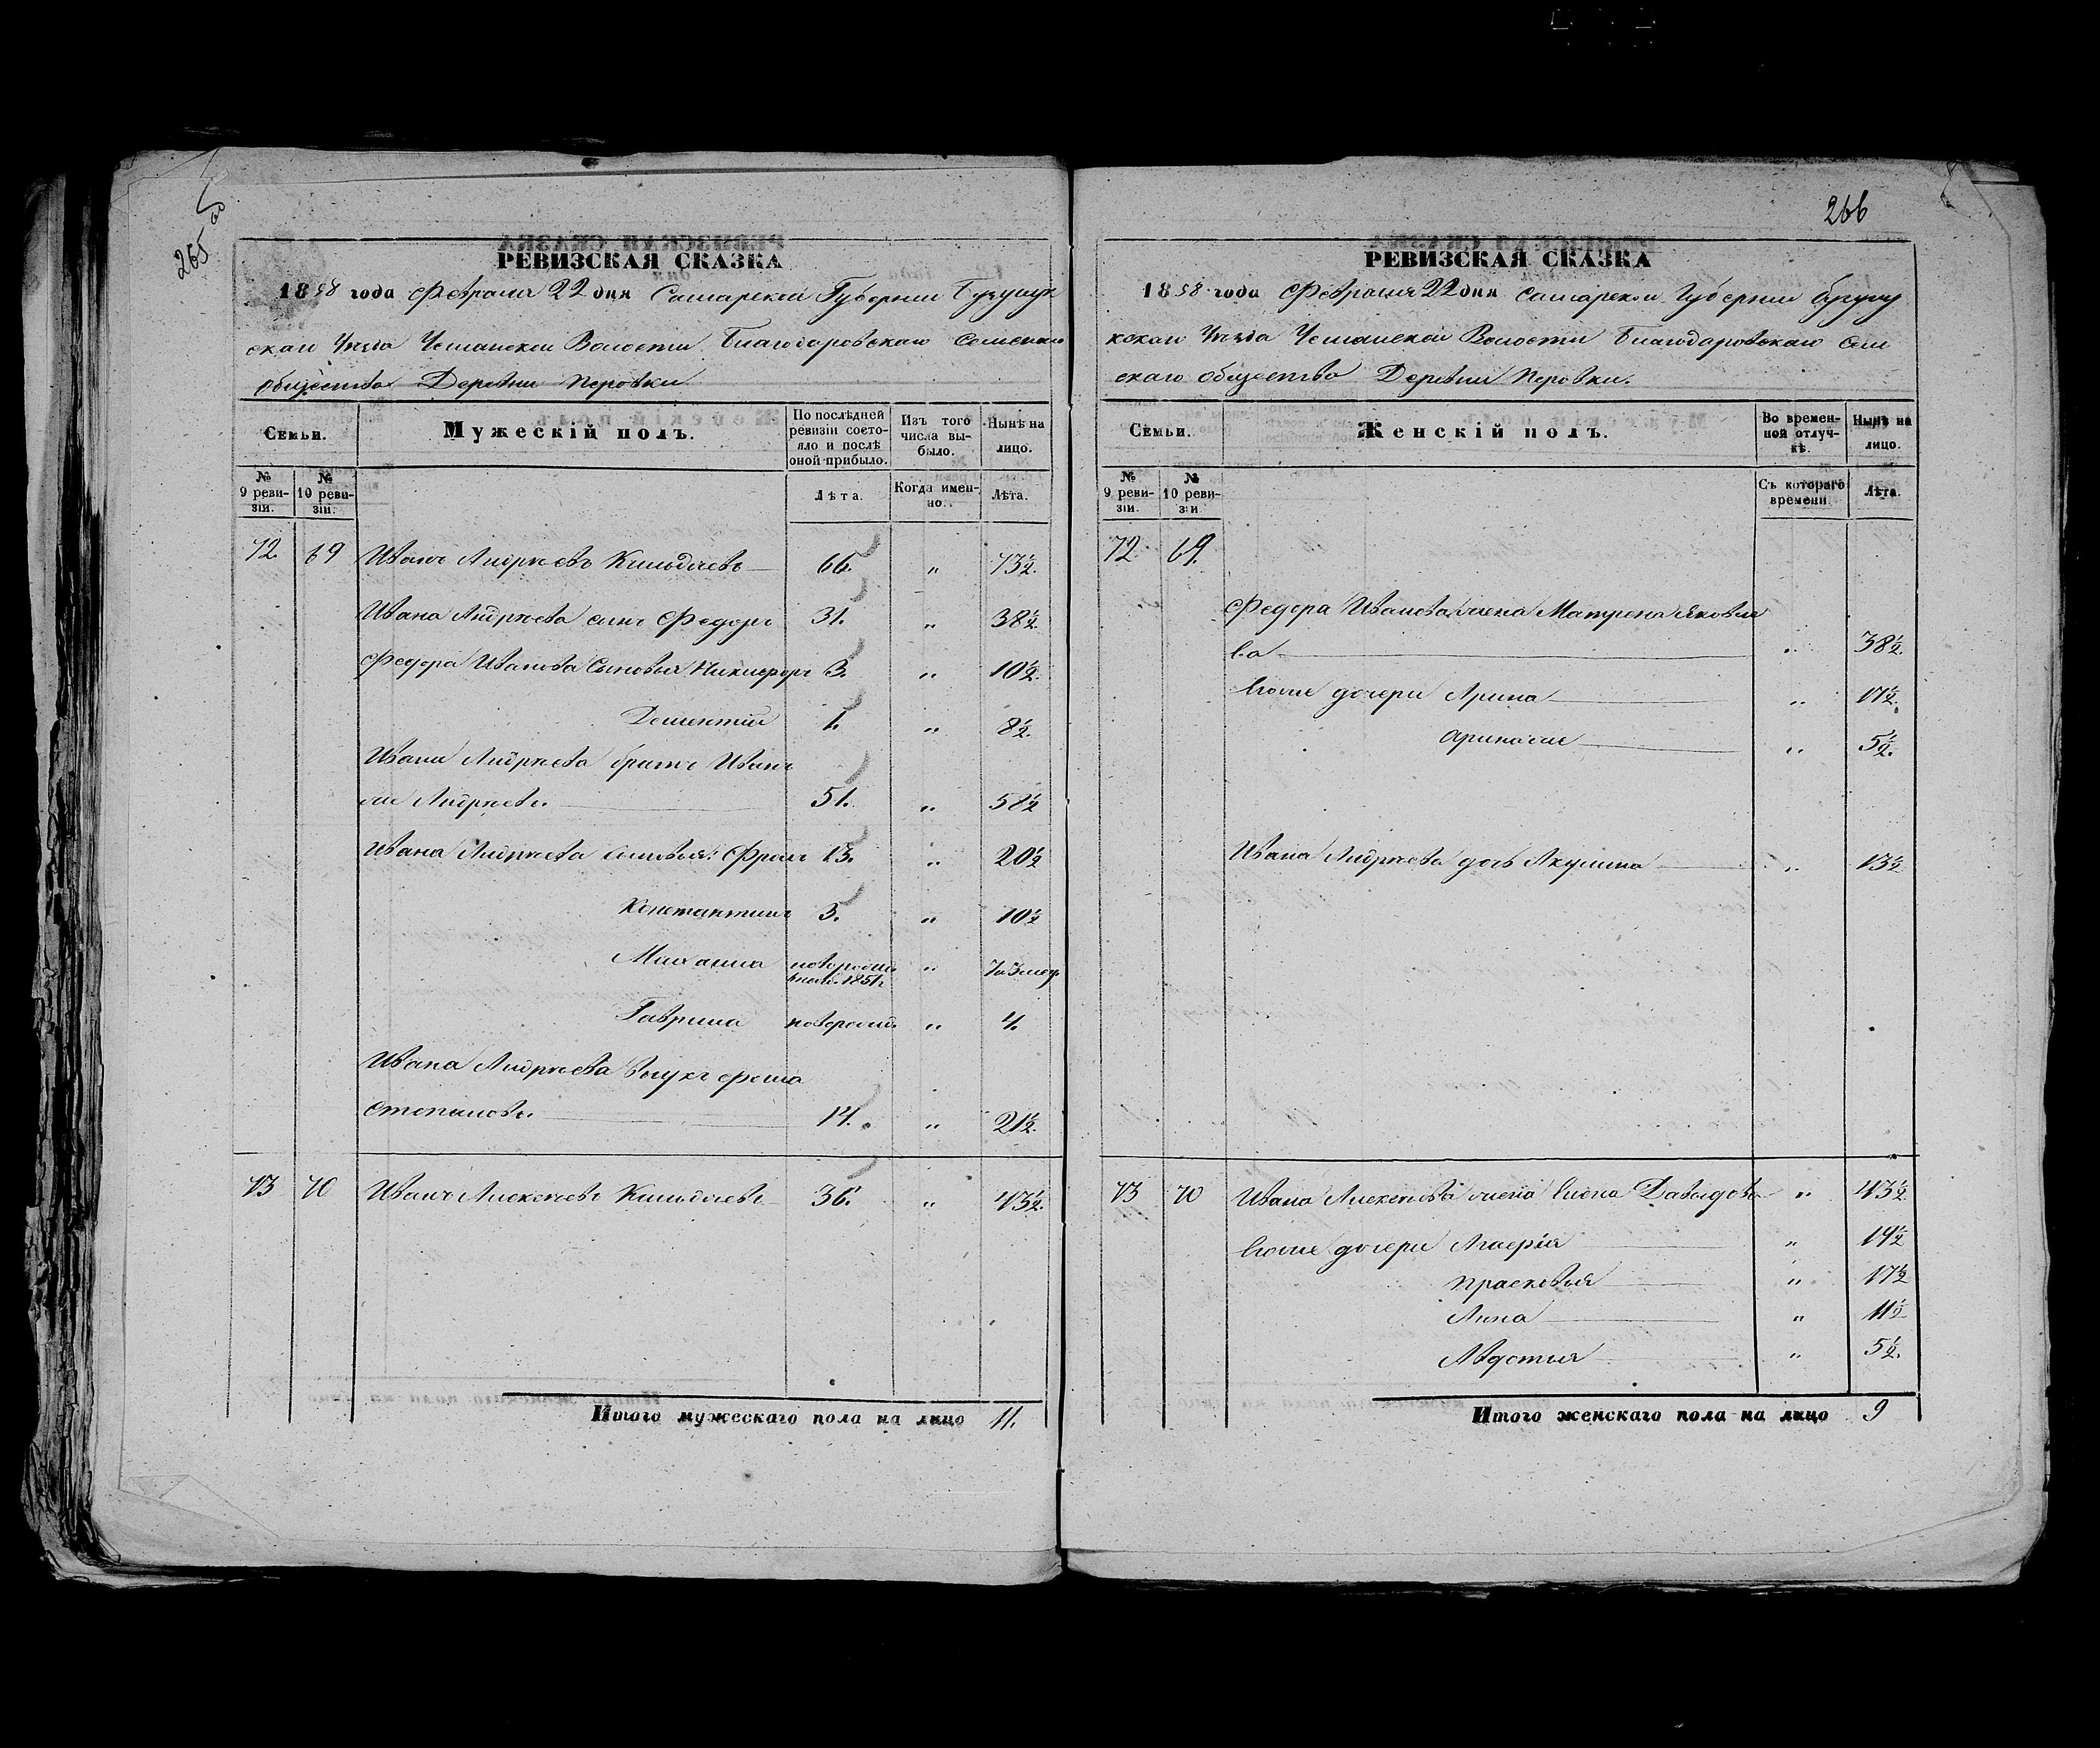 265
РЕВИЗСКАЯ СКАЗКА
1858 года Февраля 22 дня Самарской Губернии Бузулук
скаго Уезда Благодаровскаго Сельскаго
общества Деревни Перовки
Семьи.
Мужескій полъ.
По послѣдней ревизіи состояло и послѣ оной прибыло.
Изъ того числа выбыло.
Нынѣ на лицо.
№ 9 ревизіи.
№ 10 ревизіи.
Лѣта.
Когда именно.
Лѣта.
72. 69 Иванъ Андреевъ Кильдяевъ 66. " 73½.
Ивана Андреева сынъ Федоръ 31. " 38½.
Федора Иванова сыновья Никифоръ 3. " 10½.
Дементій 1. " 8½.
Ивана Андреева братъ Иванъ
же Андреевъ. 51. " 58½
Ивана Андреева сыновья: Фролъ 13. " 20½
Константинъ 3. " 10½
Михаила новорожд. 1851г. "
Гаврила новорожд. " 4.
Ивана Андреева внукъ Фома
Степановъ. 14. " 21½.
73 70 Иванъ Алексеевъ Кильдяевъ 36. " 43½.
Итого мужескаго пола на лицо 11.
266
РЕВИЗСКАЯ СКАЗКА
1858 года Февраля 22 дня Самарской Губернии Бузулу
кскаго Уезда Волости Благодаровскаго Сель
скаго общества Деревни Перовки.
Семьи.
Женскій полъ.
Во временной отлучкѣ.
Нынѣ на лицо.
№ 9 ревизіи.
№ 10 ревизіи
Съ котораго времени
Лѣта.
72 69.
Федора Иванова жена Матрена Яковле
ва " 38½.
Ихъ же дочери Арина " 17½.
" 5½.
Ивана Андреева дочь Акулина " 13½
73 70 Ивана Алексеева жена Елена Давыдова " 43½
дочери " 19½
Прасковья " 17½
Анна " 11½
Авдотья " 5½.
Итого женскаго пола на лицо 9